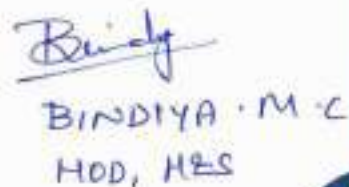 Bindy
BINDIYA . M . C
HOD, H&S